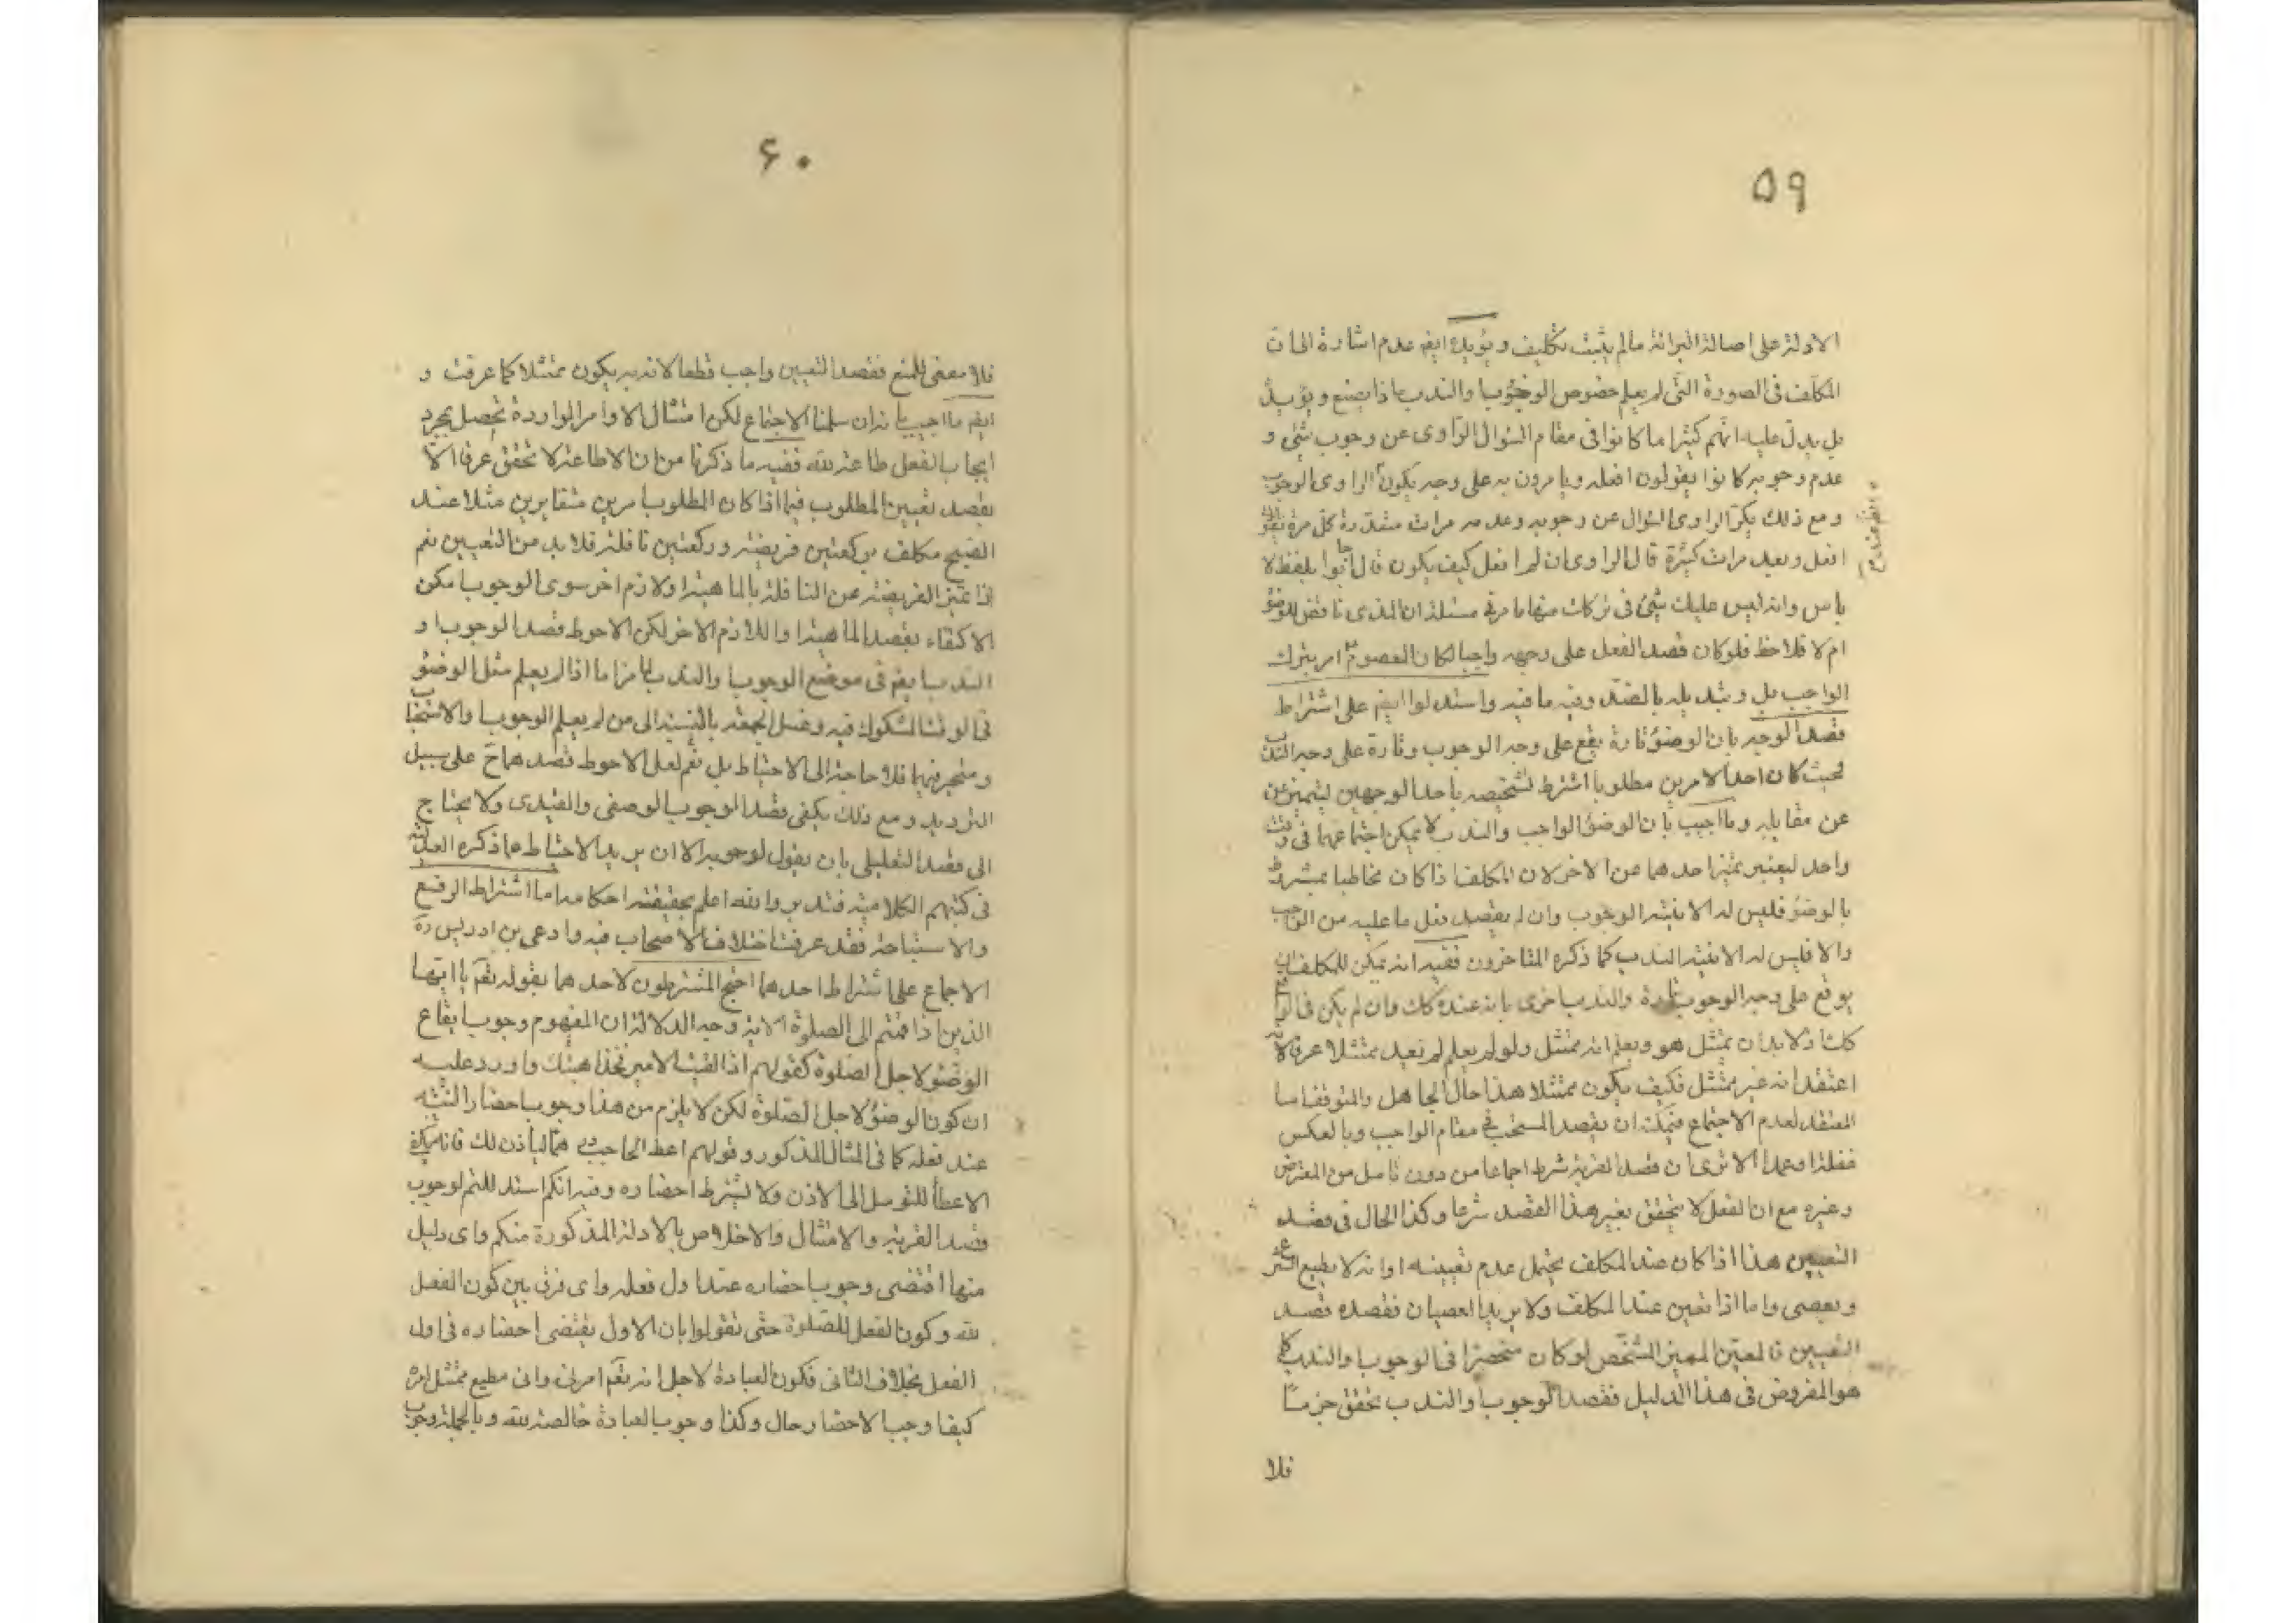 ۵۹
الادلة على اصالة البرائة مالم يثبت تكليف ويؤيده ايضم عدم اشارة الى ان
المكلف فى الصورة التى لم يعلم خصوص الوجوب والندب ماذا يصنع ويؤيد
بل يدل عليه انهم كثيرا ما كانوا فى مقام السؤال الراوى عن وجوب شئ و
عدم وجوبه كانوا يقولون افعله ويامرون به على وجه يكون الراوى الوجوب
ومع ذلك يكرر الراوى السؤال عن وجوبه وعدمه مرات متعددة كل مرة يقول
افعل وبعد مرات كثيرة قال الراوى ان لم افعل كيف يكون قال اجابوا بلفظ لا
باس وانه ليس عليك شئ فى تركات منها ما مر فى مسئلة ان المذى ناقض للوضوء
ام لا فلاحظ فلو كان قصد الفعل على وجهه واجبا لكان المعصوم امر بترك
الواجب بل وتبديله بالضد وفيه ما فيه واستدلوا ايضم على اشتراط
قصد الوجه بان الوضوء تارة يقع على وجه الوجوب وتارة على وجه الندب
فحيث كان احد الامرين مطلوبا اشترط تشخيصه باحد الوجهين ليتميز عن
عن مقابله وما اجيب بان الوضوء الواجب والندب لا يمكن اجتماعهما فى وقت
واحد ليعتبر تميز احدهما عن الاخر لان المكلف اذا كان مخاطبا بمشروط
بالوضوء فليس له الا نية الوجوب وان لم يقصد فعل ما عليه من الواجب
والا فليس له الا نية الندب كما ذكره المتاخرون ففيه انه يمكن للمكلف ان
يوقع على وجه الوجوب تارة والندب اخرى بانه عنده كك وان لم يكن فى الواقع
كك اذ لا بد ان يمتثل هو ويعلم انه ممتثل ولو لم يعلم لم يعد ممتثلا عرفا لانه
اعتقد انه غير ممتثل فكيف يكون ممتثلا هذا حال الجاهل والمتوقف اما
المعتقد لعدم الاجتماع فيمكنه ان يقصد المستحب فى مقام الواجب وبالعكس
غفلة او عمدا الا ترى ان قصد القربة شرط اجماعا من دون تامل من المعترض
وغيره مع ان الفعل لا يتحقق بغير هذا القصد شرعا وكذا الحال فى قصد
التعيين هذا اذا كان عند المكلف يحتمل عدم تعيينه او انه لا يطيع الشرع
ويعصى واما اذا تعين عند المكلف ولا يريد العصيان فقصده قصد
التعيين فالمعين المميز المشخص لو كان منحصرا فى الوجوب والندب كما
هو المفروض فى هذا الدليل فقصد الوجوب والندب يتحقق جزما
فلا
۶۰
فلا معنى للمنع فقصد التعيين واجب قطعا لانه به يكون ممتثلا كما عرفت و
ايضم ما اجيب بانه ان سلمنا الاجتماع لكن امتثال الاوامر الواردة تحصل بمجرد
ايجاب الفعل طاعة لله ففيه ما ذكرنا من ان الاطاعة لا تحقق عرفا الا
بقصد تعيين المطلوب فيما اذا كان المطلوب امرين متغايرين مثلا عند
الصبح مكلف بركعتين فريضة وركعتين نافلة فلا بد من التعيين نعم
اذا تميز الفريضة عن النافلة بالماهية او لازم اخر سوى الوجوب امكن
الاكتفاء بقصد الماهية او اللازم الاخر لكن الاحوط قصد الوجوب او
الندب ايضم فى موضع الوجوب والندب لما مر اما اذا لم يعلم مثل الوضوء
فى الوقت المشكوك فيه وغسل الجمعة بالنسبة الى من لم يعلم الوجوب والاستحباب
ومتحير فيهما فلا حاجة الى الاحتياط بل نعم لعل الاحوط قصدهما ح على سبيل
الترديد ومع ذلك يكفى قصد الوجوب الوصفى والقيدى ولا يحتاج
الى قصد التعليلى بان يقول لوجوبه الا ان يريد الاحتياط مما ذكره العدلية
فى كتبهم الكلامية فتدبر والله اعلم بحقيقة احكامه اما اشتراط الرفع
والاستباحة فقد عرفت اختلاف الاصحاب فيه وادعى بن ادريس ره
الاجماع على اشتراط احدهما احتج المشترطون لاحدهما بقوله تعم يا ايها
الذين اذا قمتم الى الصلوة الاية وجه الدلالة ان المفهوم وجوب ايقاع
الوضوء لاجل الصلوة كقولهم اذا لقيت الامير فخذ اهبتك واورد عليه
ان كون الوضوء لاجل الصلوة لكن لا يلزم من هذا وجوب احضار النية
عند فعله كما فى المثال المذكور وقولهم اعط الحاجب درهما لياذن لك فانه يكفى
الاعطاء للتوسل الى الاذن ولا يشترط احضاره وفيه انكم استدللتم لوجوب
قصد القربة والامتثال والاخلاص بالادلة المذكورة منكم واى دليل
منها اقتضى وجوب احضاره عند اول فعله واى فرق بين كون الفعل
لله وكون الفعل للصلوة حتى تقولوا بان الاول يقتضى احضاره فى اول
الفعل بخلاف الثانى فكون العبادة لاجل انه تعم امرنى وانى مطيع ممتثل امره
كيف اوجب الاحضار حال وكذا وجوب العبادة خالصة لله وبالجملة وجوب